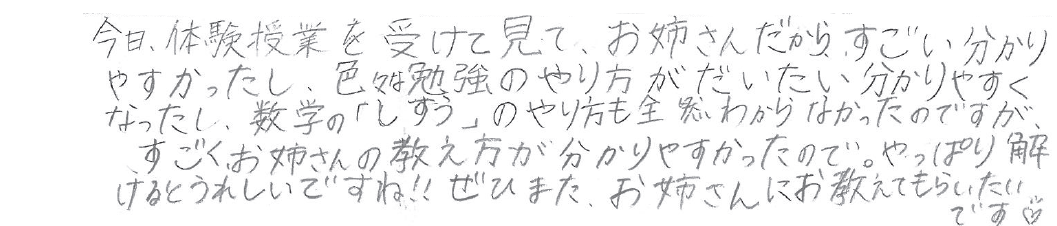 今日、体験授業を受けて見て、お姉さんだから、すごい分かり
やすかったし、色々な勉強のやり方がだいたい分かりやすく
なったし、数学の「しすう」のやり方も全然わからなかったのですが、
すごく、お姉さんの教え方が分かりやすかったので。やっぱり解
けるとうれしいですね!! ぜひまた、お姉さんにお教えてもらいたい
です♡